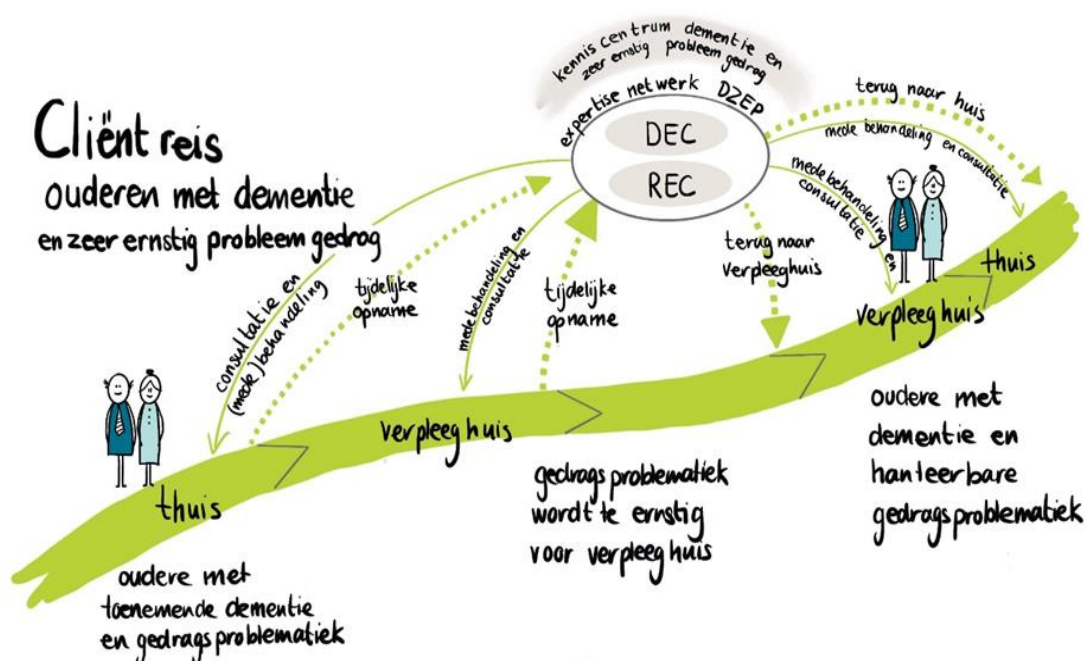 Cliënt reis
ouderen met dementie
en zeer ernstig probleem gedrag
kennis centrum dementie en
zeer ernstig probleem gedrag
expertise netwerk DZEP
DEC
REC
consultatie en
(mede) behandeling
tijdelijke
opname
mede behandeling en
consultatie
tijdelijke
opname
terug naar
verpleeghuis
mede behandeling en
consultatie
mede behandeling en consultatie
terug naar huis
thuis
verpleeg huis
verpleeg huis
thuis
oudere met
toenemende dementie
en gedrags problematiek
gedrags problematiek
wordt te ernstig
voor verpleeg huis
oudere met
dementie en
hanteerbare
gedrags problematiek